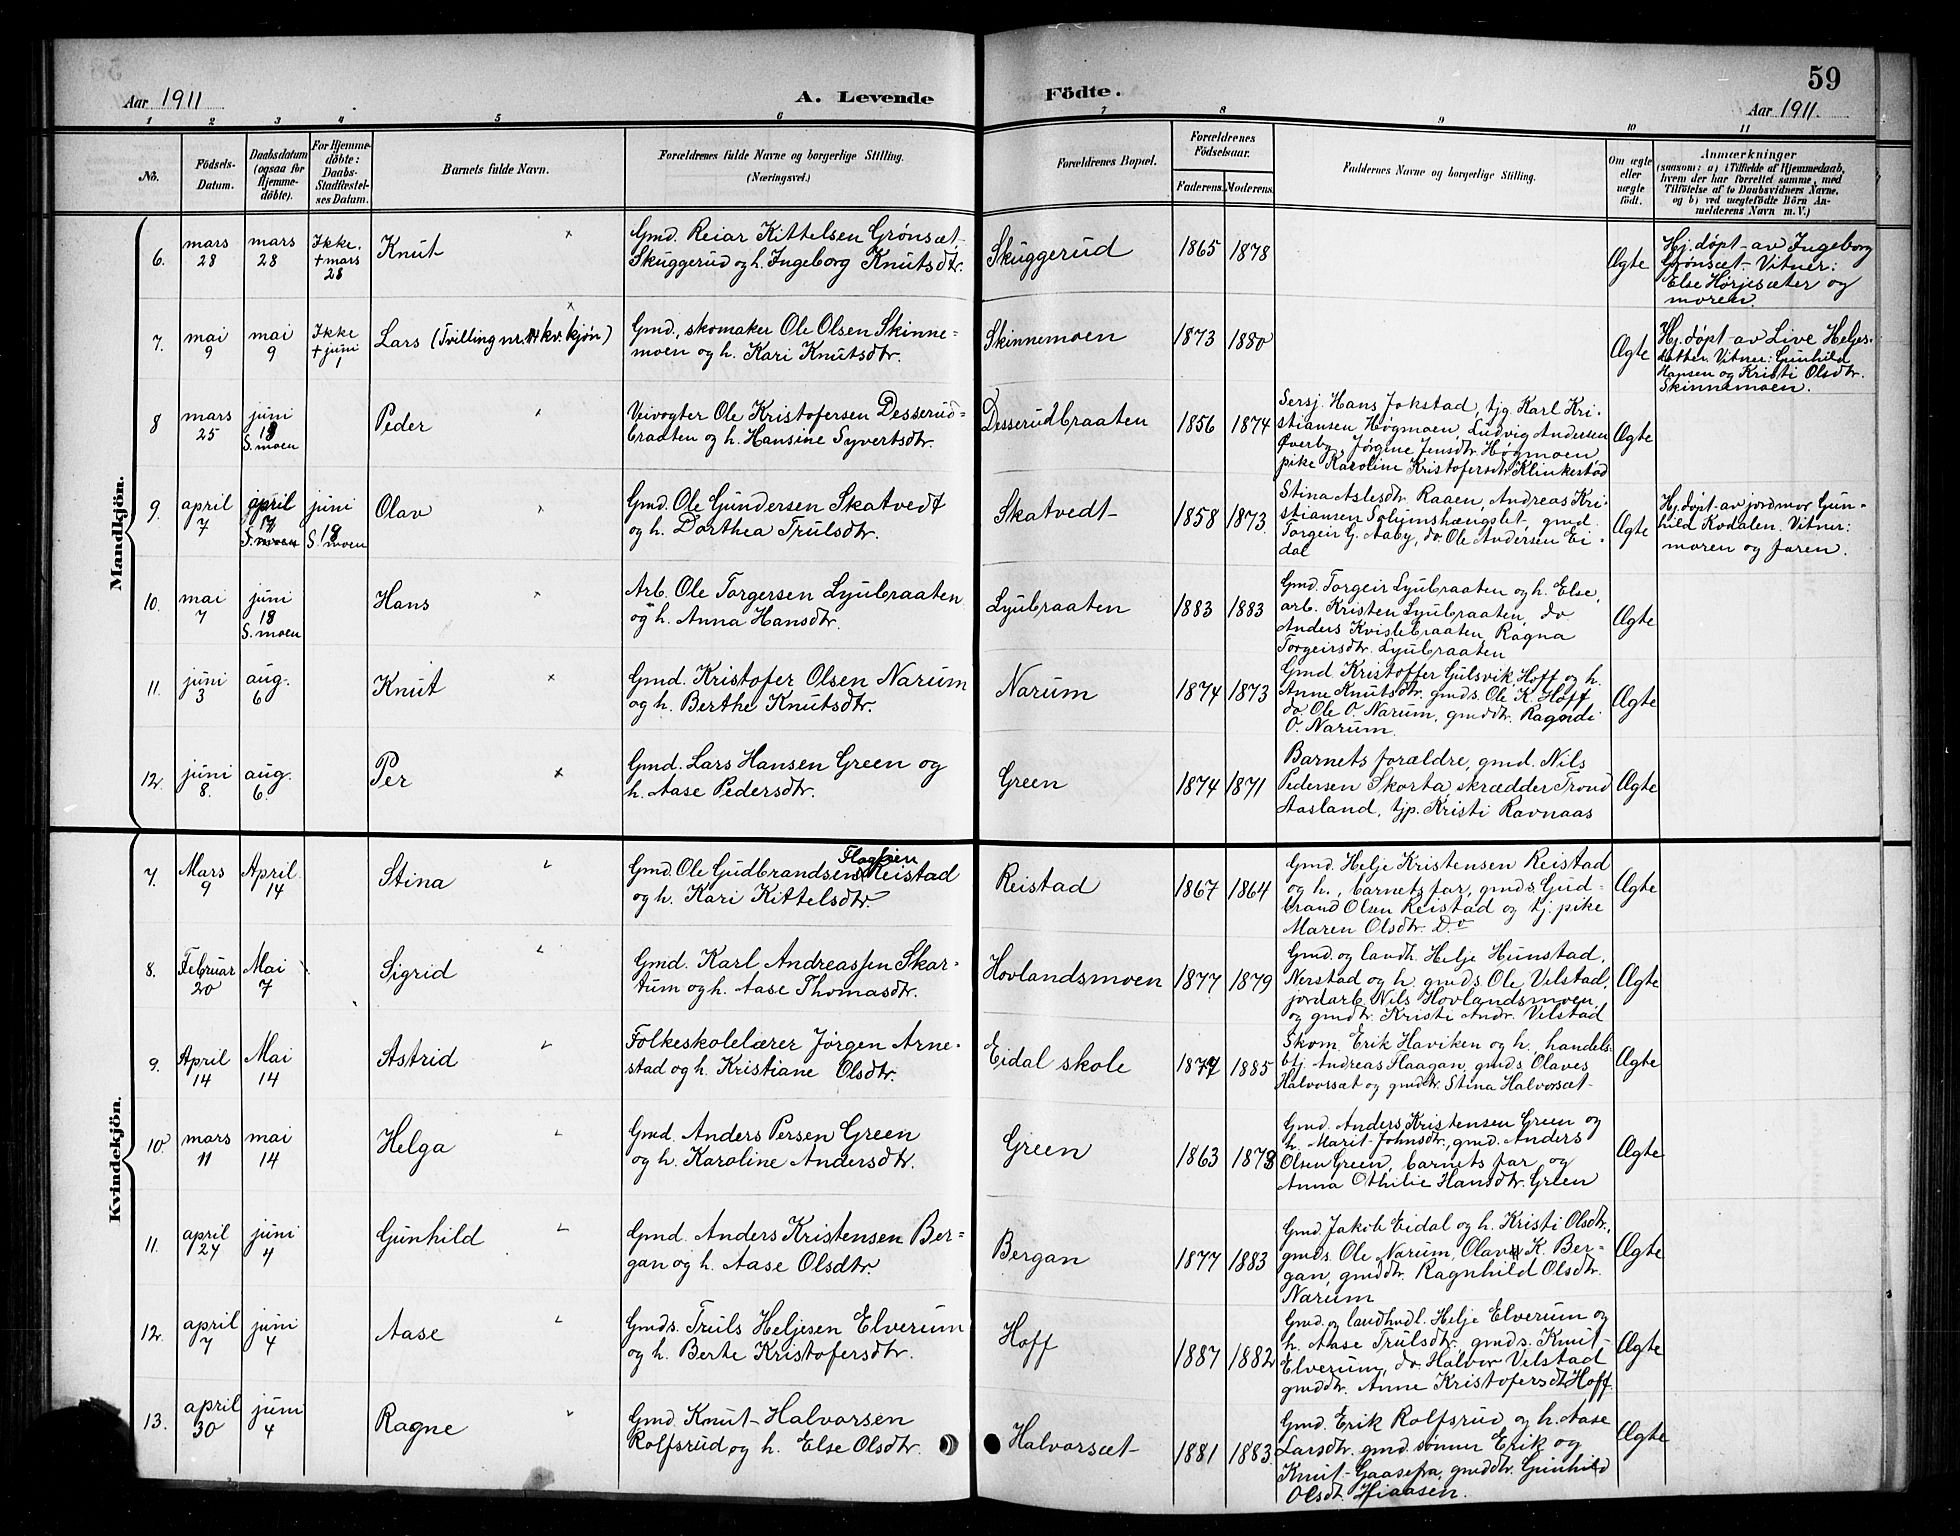 59
Aar 1911
A. Levende
Födte.
Aar 1911.
1 2 3 4 5 6 7 8 9 10 11
No.
Födsels-
Datum.
Daabsdatum
(ogsaa for
Hjemme-
döbte).
For Hjemme-
döbte:
Daabs-
Stadfæstel-
ses Datum.
Barnets fulde Navn.
Forældrenes fulde Navne og borgerlige Stilling.
(Næringsvei.)
Forældrenes Bopæl.
Forældrenes
Födselsaar.
Faderens. Moderens.
Faddernes Navne og borgerlige Stilling.
Om ægte
eller
uægte
födt.
Anmærkninger
(saasom: a) i Tilfælde af Hjemmedaab,
hvem der har forrettet samme, med
Tilföielse af to Daabsvidners Navne,
og b) ved uægtefödte Börn An-
melderens Navn m. V.)
Mandkjön.
6.
mars
28
mars
28
Ikke.
+ mars
28
Knut
Gmd. Reiar Kittelsen Grønsæt-
Skuggerud og h. Ingeborg Knutsdtr.
Skuggerud
1865
1878
Ægte
Hj. døpt av Ingeborg
Grønsæt. Vitner:
Else Hørjesæter og
moren.
7.
mai
9
mai
9
Ikke
+ juni
1
Lars (Tvilling nr. kv. kjøn)
Gmd., skomaker Ole Olsen Skinne-
moen og h. Kari Knutsdtr.
Skinnemoen
1873
1880
Ægte
Hj. døpt av Live Heljes-
datter. Vitner: Gunhild
Hansen og Kristi Olsdtr.
Skinnemoen.
8
mars
25
juni
18
S. moen
Peder
Veivogter Ole Kristofersen Desserud-
braaten og h. Hansine Syvertsdtr.
Desserudbraaten
1856
1874
Sersj. Hans Jokstad, tjg. Karl Kri-
stiansen Høgmoen, Ludvig Andersen
Øverby, Jørgine Jensdtr. Høgmoen,
pike Karoline Kristofersdtr. Klinkestad
Ægte
9.
april
7
april
17
S. moen
juni
18
S. moen
Olav
Gmd. Ole Gundersen Skatvedt
og h. Dorthea Trulsdtr.
Skatvedt
1858
1873.
Stina Aslesdtr. Raaen, Andreas Kri-
stiansen Solumshængslet, gmd.
Torgeir G. Aaby, do. Ole Andersen Ei-
dal
Ægte
Hj. døpt av jordmor Gun-
hild Kodalen. Vitner:
moren og faren.
10.
mai
7
juni
18
S. moen
Hans
Arb. Ole Torgersen Lyubraaten
og h. Anna Hansdtr.
Lyubraaten
1883
1883
Gmd. Torgeir Lyubraaten og h. Else,
arb. Kristen Lyubraaten, do
Anders Kvislebraaten, Ragna
Torgeirsdtr. Lyubraaten
Ægte
11.
juni
3
aug.
6
Knut
Gmd. Kristofer Olsen Narum
og h. Berthe Knutsdtr.
Narum
1874
1873
Gmd. Kristoffer Gulsvik Hoff og h.
Anne Knutsdtr. gmds. Ole K. Hoff
do Ole O. Narum, gmddtr. Ragndi
O. Narum.
Ægte
12.
juni
8.
aug.
6.
Per
Gmd. Lars Hansen Green og
h. Aase Pedersdtr.
Green
1874
1871
Barnets forældre, gmd. Nils
Pedersen Skorta, skrædder Trond
Aasland, tjp. Kristi Ravnaas
Ægte
Kvindekjön.
7.
Mars
9
April
14
Stina
Flaglien
Gmd. Ole Gudbrandsen Reistad
og h. Kari Kittelsdtr.
Reistad
1867
1864
Gmd. Helje Kristensen Reistad
og h., barnets far, gmds. Gud-
brand Olsen Reistad og tj. pike
Maren Olsdtr. Do
Ægte
8.
Februar
20
Mai
7
Sigrid
Gmd. Karl Andreassen Skar-
tum og h. Aase Thomasdtr.
Hovlandsmoen
1877
1879
Gmd. og landh. Helje Hunstad,
Nerstad og h. gmds. Ole Vilstad,
jordarb. Nils Hovlandsmoen,
og gmdtr. Kristi Andr. Velstad
Ægte
9.
April
14
Mai
14
Astrid
Folkeskolelærer Jørgen Arne-
stad og h. Kristiane Olsdtr.
Eidal skole
1877
1885
Skom. Erik Haviken og h., handels-
btj. Andreas Flaagan, gmds. Olaves
Halvorsæt og gmdtr. Stina Halvorsæt
Ægte
10
mars
11
mai
14
Helga
Gmd. Anders Persen Green
og h. Karoline Andersdtr.
Green
1863
1873
Gmd. Anders Kristensen Green og
h. Marit Johnsdtr., gmd. Anders
Olsen Green, barnets far, og
Anna Othilie Hansdtr. Green
Ægte
11.
april
24
juni
4
Gunhild
Gmd. Anders Kristensen Ber-
gan og h. Aase Olsdtr.
Bergan
1877
1883
Gmd. Jakob Eidal og h. Kristi Olsdtr.,
gmds. Ole Narum, Olav K. Ber-
gan, gmddtr. Ragnhild Olsdtr.
Narum
Ægte
12.
april
7
juni
4
Aase
Gmds. Truls Heljesen Elverum
og h. Berte Kristofersdtr.
Hoff
1887
1882
Gmd. og landhndl. Helje Elverum og
h. Aase Trulsdtr. gmds. Knut
Elverum, do Halvor Velstad
gmddtr. Anne Kristofersdt. Hoff.
Ægte
13.
april
30
juni
4
Ragne
Gmd. Knut Halvorsen
Rolfsrud og h. Else Olsdtr.
Halvorsæt
1881
1883
Gmd. Erik Rolfsrud og h. Aase
Larsdtr. gmd. sønner Erik og
Knut Gaasefra, gmddtr. Gunhild
Olsdt. Hiaasen.
Ægte